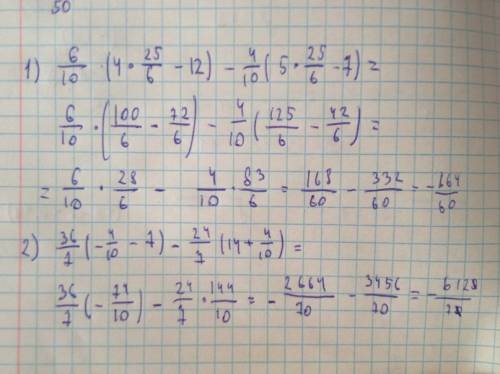 50
1) 6/10 · (4 · 25/6 − 12) − 4/10 (5 · 25/6 − 7) =
6/10 · (100/6 − 72/6) − 4/10 (125/6 − 42/6) =
= 6/10 · 28/6 − 4/10 · 83/6 = 168/60 − 332/60 = −164/60
2) 36/7 (−4/10 − 7) − 24/7 (14 + 4/10) =
36/7 (−74/10) − 24/7 · 144/10 = −2664/70 − 3456/70 = −